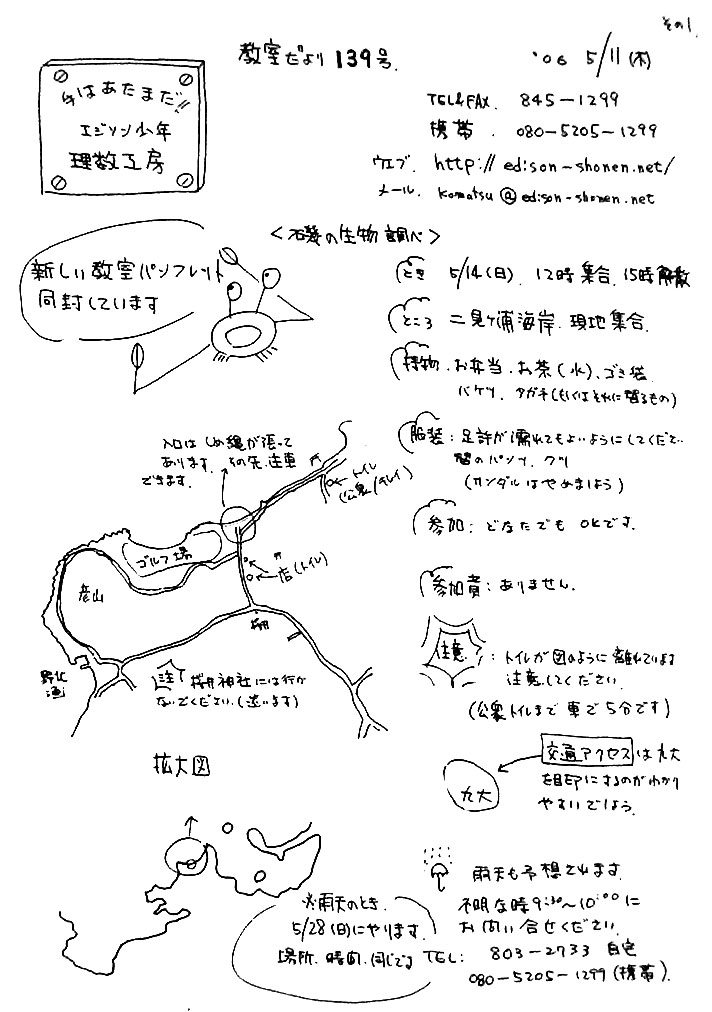 その1
教室だより 139号.
'06 5/11(木)
今はあたまだ!!
エジソン少年
理数工房
TEL&FAX. 845-1299
携帯. 080-5205-1299
ウェブ. http://edison-shonen.net/
メール. komatsu@edison-shonen.net
<磯の生物調べ>
新しい教室パンフレット
同封しています
とき 5/14(日). 12時集合. 15時解散
ところ 二見ヶ浦海岸. 現地集合.
持物. お弁当. お茶(水)、ゴミ袋.
バケツ. アガチ(もしくはそれに替るもの)
服装:足許が濡れてもよいようにしてくださ
替のパンツ. クツ
(サンダルはやめましょう)
参加:どなたでもOKです.
参加費:ありません.
注意:トイレが図のように離れています
注意してください.
(公衆トイレまで車で5分です)
入口はしめ縄が張って
あります. その先. 駐車
できます.
トイレ
(公衆/キレイ)
ゴルフ場
店(トイレ)
彦山
桜井
野北
漁
注 桜井神社には行か
ないでください.(違います)
拡大図
交通アクセスは九大
を目印にするのがわかり
やすいでしょう.
九大
雨天も予想されます.
不明な時9:30~10:00に
お問い合せください.
TEL: 803-2733 自宅
080-5205-1299(携帯).
※雨天のとき.
5/28(日)にやります.
場所. 時間. 同じです